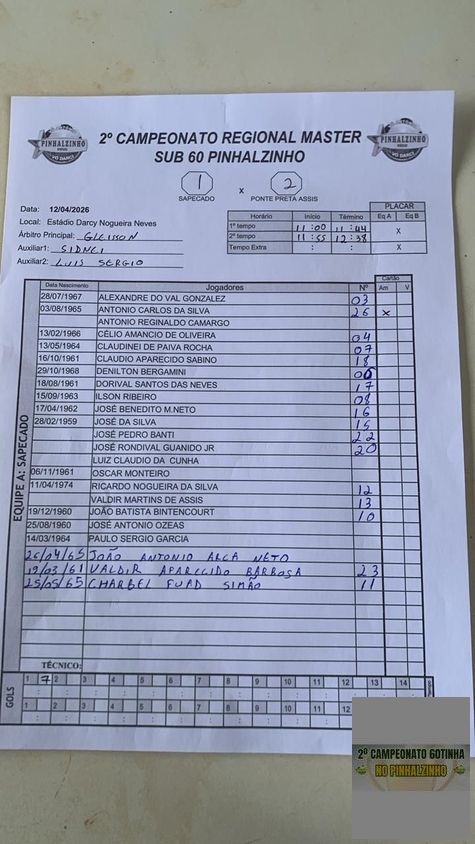 PINHALZINHO
VÔ DARCY
2º CAMPEONATO REGIONAL MASTER
SUB 60 PINHALZINHO
PINHALZINHO
VÔ DARCY
1 x 2
SAPECADO PONTE PRETA ASSIS
Data: 12/04/2026
Local: Estádio Darcy Nogueira Neves
Árbitro Principal: GLEISSON
Auxiliar1: SIDNEI
Auxiliar2: LUIS SERGIO
PLACAR
Horário Início Término Eq A Eq B
1º tempo 11:00 11:44 X
2º tempo 11:55 12:38 X
Tempo Extra : :
Cartão
Data Nascimento Jogadores Nº Am V
28/07/1967 ALEXANDRE DO VAL GONZALEZ 03
03/08/1965 ANTONIO CARLOS DA SILVA 26 x
ANTONIO REGINALDO CAMARGO
13/02/1966 CÉLIO AMANCIO DE OLIVEIRA 04
13/05/1964 CLAUDINEI DE PAIVA ROCHA 07
16/10/1961 CLAUDIO APARECIDO SABINO 18
29/10/1968 DENILTON BERGAMINI
18/08/1961 DORIVAL SANTOS DAS NEVES 17
15/09/1963 ILSON RIBEIRO 08
17/04/1962 JOSÉ BENEDITO M.NETO 16
28/02/1959 JOSÉ DA SILVA 15
JOSÉ PEDRO BANTI 22
JOSÉ RONDIVAL GUANIDO JR 20
LUIZ CLAUDIO DA CUNHA
06/11/1961 OSCAR MONTEIRO
11/04/1974 RICARDO NOGUEIRA DA SILVA 12
VALDIR MARTINS DE ASSIS 13
19/12/1960 JOÃO BATISTA BINTENCOURT 10
25/08/1960 JOSÉ ANTONIO OZEAS
14/03/1964 PAULO SERGIO GARCIA
26/04/65 JOÃO ANTONIO ARCA NETO
19/03/61 VALDIR APARECIDO BARBOSA 23
25/05/65 CHARBEL FUAD SIMÃO 11
EQUIPE A: SAPECADO
TÉCNICO:
GOLS
1 7 2 3 4 5 6 7 8 9 10 11 12 13 14
: : : : : : : : : : : :
1 2 3 4 5 6 7 8 9 10 11 12
: : : : : : : : : : :
2º CAMPEONATO 60TINHA
NO PINHALZINHO